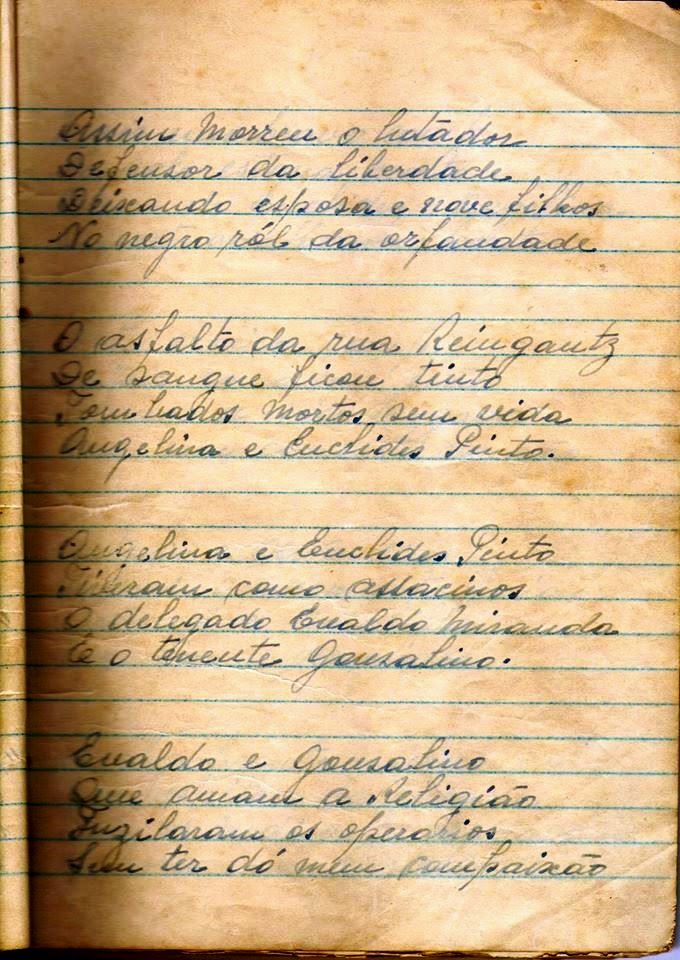 Assim Morreu o lutador
Defensor da liberdade
Deixando esposa e nove filhos
No negro ról da orfandade
O asfalto da rua Reingantz
De sangue ficou tinto
Tombados mortos sem vida
Angelina e Euclides Pinto.
Angelina e Euclides Pinto
Tiveram como assacinos
O delegado Evaldo Miranda
E o tenente Gonsalino.
Evaldo e Gonsalino
Que amam a Religião
Fuzilaram os operarios
Sem ter dó nem compaixão